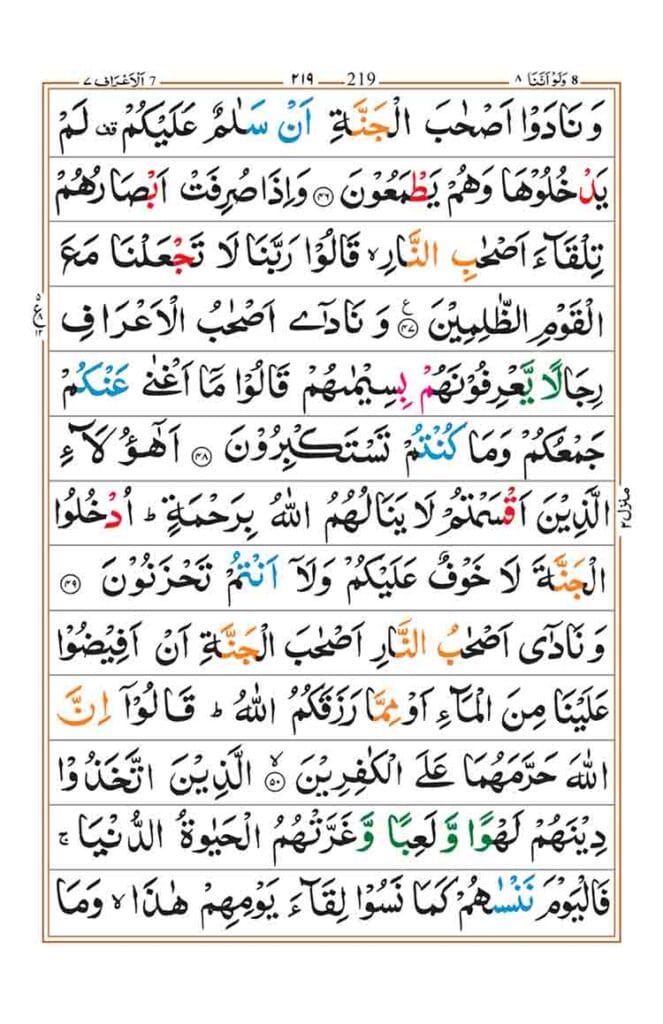 ٧ اَلْاَعْرَاف 7 ٢١٩ 219 ٨ وَلَوْ اَنَّنَا 8
وَ نَادَوْا اَصْحٰبَ الْجَنَّةِ اَنْ سَلٰمٌ عَلَيْكُمْ قف لَمْ
يَدْخُلُوْهَا وَهُمْ يَطْمَعُوْنَ ۝٤٦ وَاِذَا صُرِفَتْ اَبْصَارُهُمْ
تِلْقَآءَ اَصْحٰبِ النَّارِ ۙ قَالُوْا رَبَّنَا لَا تَجْعَلْنَا مَعَ
الْقَوْمِ الظّٰلِمِيْنَ ۝٤٧ ع وَ نَادٰٓى اَصْحٰبُ الْاَعْرَافِ
رِجَالًا يَّعْرِفُوْنَهُمْ بِسِيْمٰىهُمْ قَالُوْا مَآ اَغْنٰى عَنْكُمْ
جَمْعُكُمْ وَمَا كُنْتُمْ تَسْتَكْبِرُوْنَ ۝٤٨ اَهٰٓؤُلَآءِ
الَّذِيْنَ اَقْسَمْتُمْ لَا يَنَالُهُمُ اللّٰهُ بِرَحْمَةٍ ؕ اُدْخُلُوا
الْجَنَّةَ لَا خَوْفٌ عَلَيْكُمْ وَلَآ اَنْتُمْ تَحْزَنُوْنَ ۝٤٩
وَ نَادٰٓى اَصْحٰبُ النَّارِ اَصْحٰبَ الْجَنَّةِ اَنْ اَفِيْضُوْا
عَلَيْنَا مِنَ الْمَآءِ اَوْ مِمَّا رَزَقَكُمُ اللّٰهُ ؕ قَالُوْٓا اِنَّ
اللّٰهَ حَرَّمَهُمَا عَلَى الْكٰفِرِيْنَ ۝٥٠ ۙ الَّذِيْنَ اتَّخَذُوْا
دِيْنَهُمْ لَهْوًا وَّلَعِبًا وَّغَرَّتْهُمُ الْحَيٰوةُ الدُّنْيَا ۚ
فَالْيَوْمَ نَنْسٰىهُمْ كَمَا نَسُوْا لِقَآءَ يَوْمِهِمْ هٰذَا ۙ وَمَا
منزل ٢